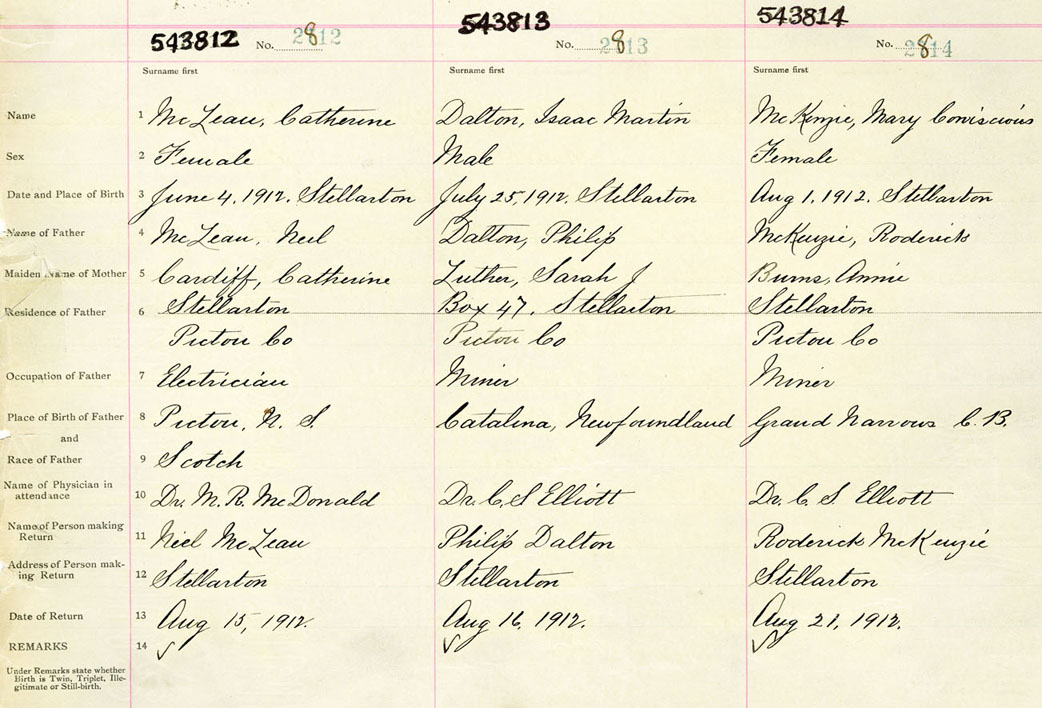 543812 No. 2812 543813 No. 2813 543814 No. 2814
Surname first Surname first Surname first
Name 1 McLean, Catherine Dalton, Isaac Martin McKenzie, Mary Coniscious
Sex 2 Female Male Female
Date and Place of Birth 3 June 4, 1912. Stellarton July 25, 1912. Stellarton Aug 1, 1912. Stellarton
Name of Father 4 McLean, Neil Dalton, Philip McKenzie, Roderick
Maiden Name of Mother 5 Cardiff, Catherine Luther, Sarah J Burns, Annie
Residence of Father 6 Stellarton Box 47, Stellarton Stellarton
Pictou Co Pictou Co Pictou Co
Occupation of Father 7 Electrician Miner Miner
Place of Birth of Father 8 Pictou, N. S. Catalina, Newfoundland Grand Narrows C. B.
and
Race of Father 9 Scotch
Name of Physician in
attendance 10 Dr. M. R. McDonald Dr. C. S Elliott Dr. C. S. Elliott
Name of Person making
Return 11 Niel McLean Philip Dalton Roderick McKenzie
Address of Person mak-
ing Return 12 Stellarton Stellarton Stellarton
Date of Return 13 Aug 15, 1912. Aug 16, 1912. Aug 21, 1912.
REMARKS 14 ✓ ✓ ✓
Under Remarks state whether
Birth is Twin, Triplet, Ille-
gitimate or Still-birth.